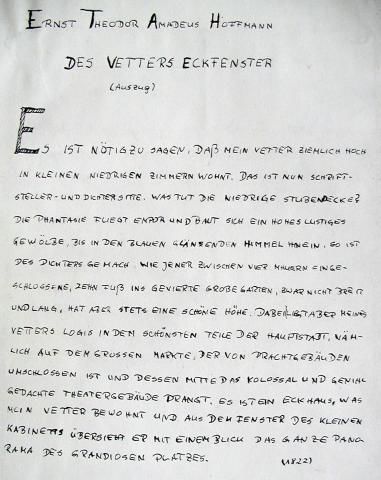 ERNST THEODOR AMADEUS HOFFMANN
DES VETTERS ECKFENSTER
(AUSZUG)
ES IST NÖTIG ZU SAGEN, DAß MEIN VETTER ZIEMLICH HOCH
IN KLEINEN NIEDRIGEN ZIMMERN WOHNT. DAS IST NUN SCHRIFT-
STELLER- UND DICHTERSITTE. WAS TUT DIE NIEDRIGE STUBENDECKE?
DIE PHANTASIE FLIEGT EMPOR UND BAUT SICH EIN HOHES LUSTIGES
GEWÖLBE, BIS IN DEN BLAUEN GLÄNZENDEN HIMMEL HINEIN. SO IST
DES DICHTERS GEMACH, WIE JENER ZWISCHEN VIER MAUERN EINGE-
SCHLOSSENE, ZEHN FUß INS GEVIERTE GROßE GARTEN, ZWAR NICHT BREIT
UND LANG, HAT ABER STETS EINE SCHÖNE HÖHE. DABEI LIEGT ABER MEINES
VETTERS LOGIS IN DEM SCHÖNSTEN TEILE DER HAUPTSTADT, NÄM-
LICH AUF DEM GROSSEN MARKTE, DER VON PRACHTGEBÄUDEN
UMSCHLOSSEN IST UND DESSEN MITTE DAS KOLOSSAL UND GENIAL
GEDACHTE THEATERGEBÄUDE PRANGT. ES IST EIN ECKHAUS, WAS
MEIN VETTER BEWOHNT UND AUS DEM FENSTER DES KLEINEN
KABINETTS ÜBERSIEHT ER MIT EINEM BLICK DAS GANZE PANO
RAMA DES GRANDIOSEN PLATZES. (1822)